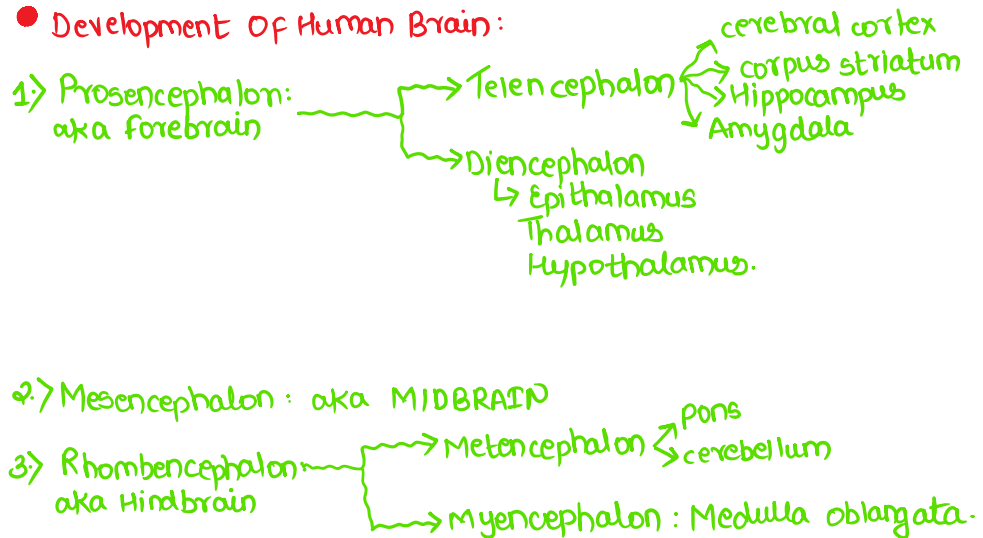 Development Of Human Brain:
1.) Prosencephalon:
aka forebrain
Telencephalon
cerebral cortex
corpus striatum
Hippocampus
Amygdala
Diencephalon
Epithalamus
Thalamus
Hypothalamus.
2.) Mesencephalon: aka MIDBRAIN
3.) Rhombencephalon
aka Hindbrain
Metencephalon
Pons
cerebellum
Myencephalon: Medulla oblangata.